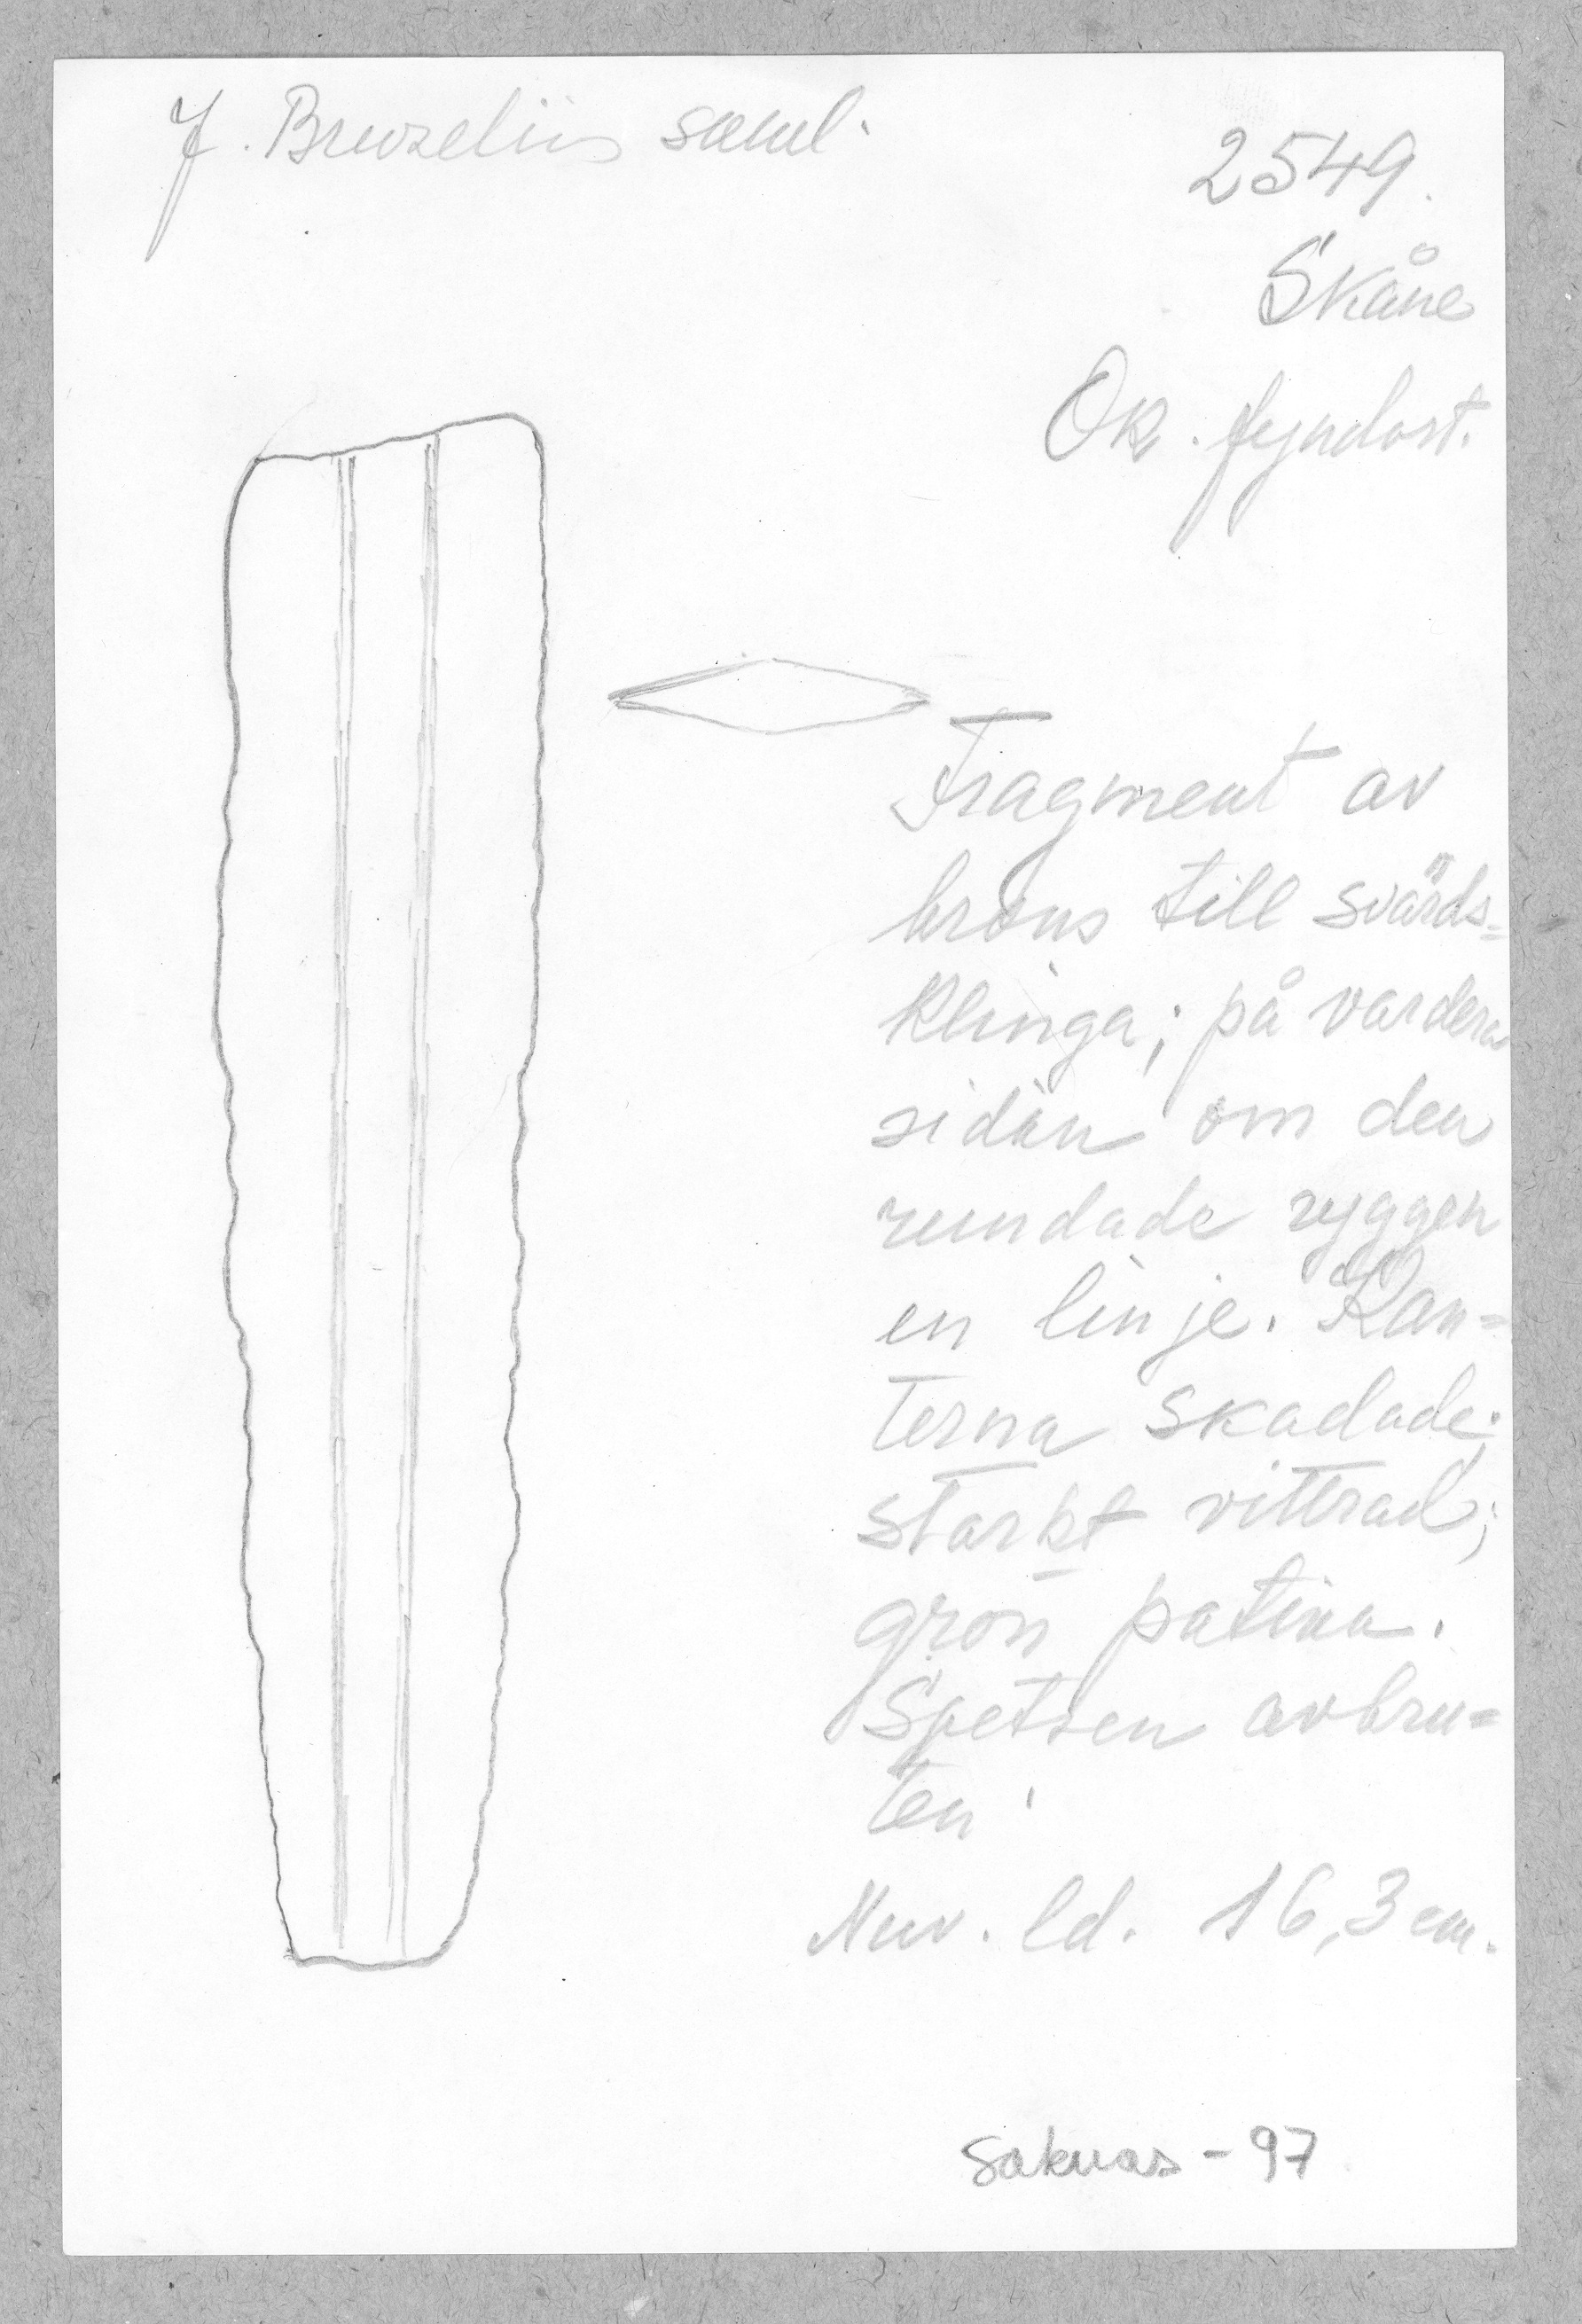 J. Bruzelius saml.
2549.
Skåne
Ok. fyndort.
Fragment av
brons till svärds=
klinga; på vardera
sidan om den
rundade ryggen
en linje. Kan=
terna skadade;
starkt vittrad;
grön patina.
Spetsen avbru=
ten.
Nuv. ld. 16,3 cm.
Saknas - 97